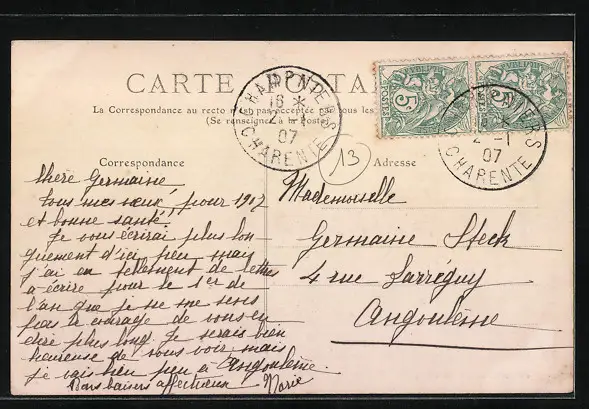 CARTE POSTALE
La Correspondance au recto n'est pas acceptée par tous les
(Se renseigner à la Poste)
CHAMPNIERS
16 *
2 - 1
07
CHARENTE
RÉPUBLIQUE
POSTES
5c
CHAMPNIERS
2 - 1
07
CHARENTE
13
Correspondance
Adresse
Chère Germaine
tous mes vœux pour 1907
et bonne santé
Je vous écrirai plus lon-
guement d'ici peu mais
j'ai eu tellement de lettres
à écrire pour le 1er de
l'an que je ne me sens
pas le courage de vous en
dire plus long. Je serais bien
heureuse de vous voir mais
je vais bien peu à Angoulême.
Bons baisers affectueux Marie
Mademoiselle
Germaine Steck
4 rue Larréguy
Angoulême